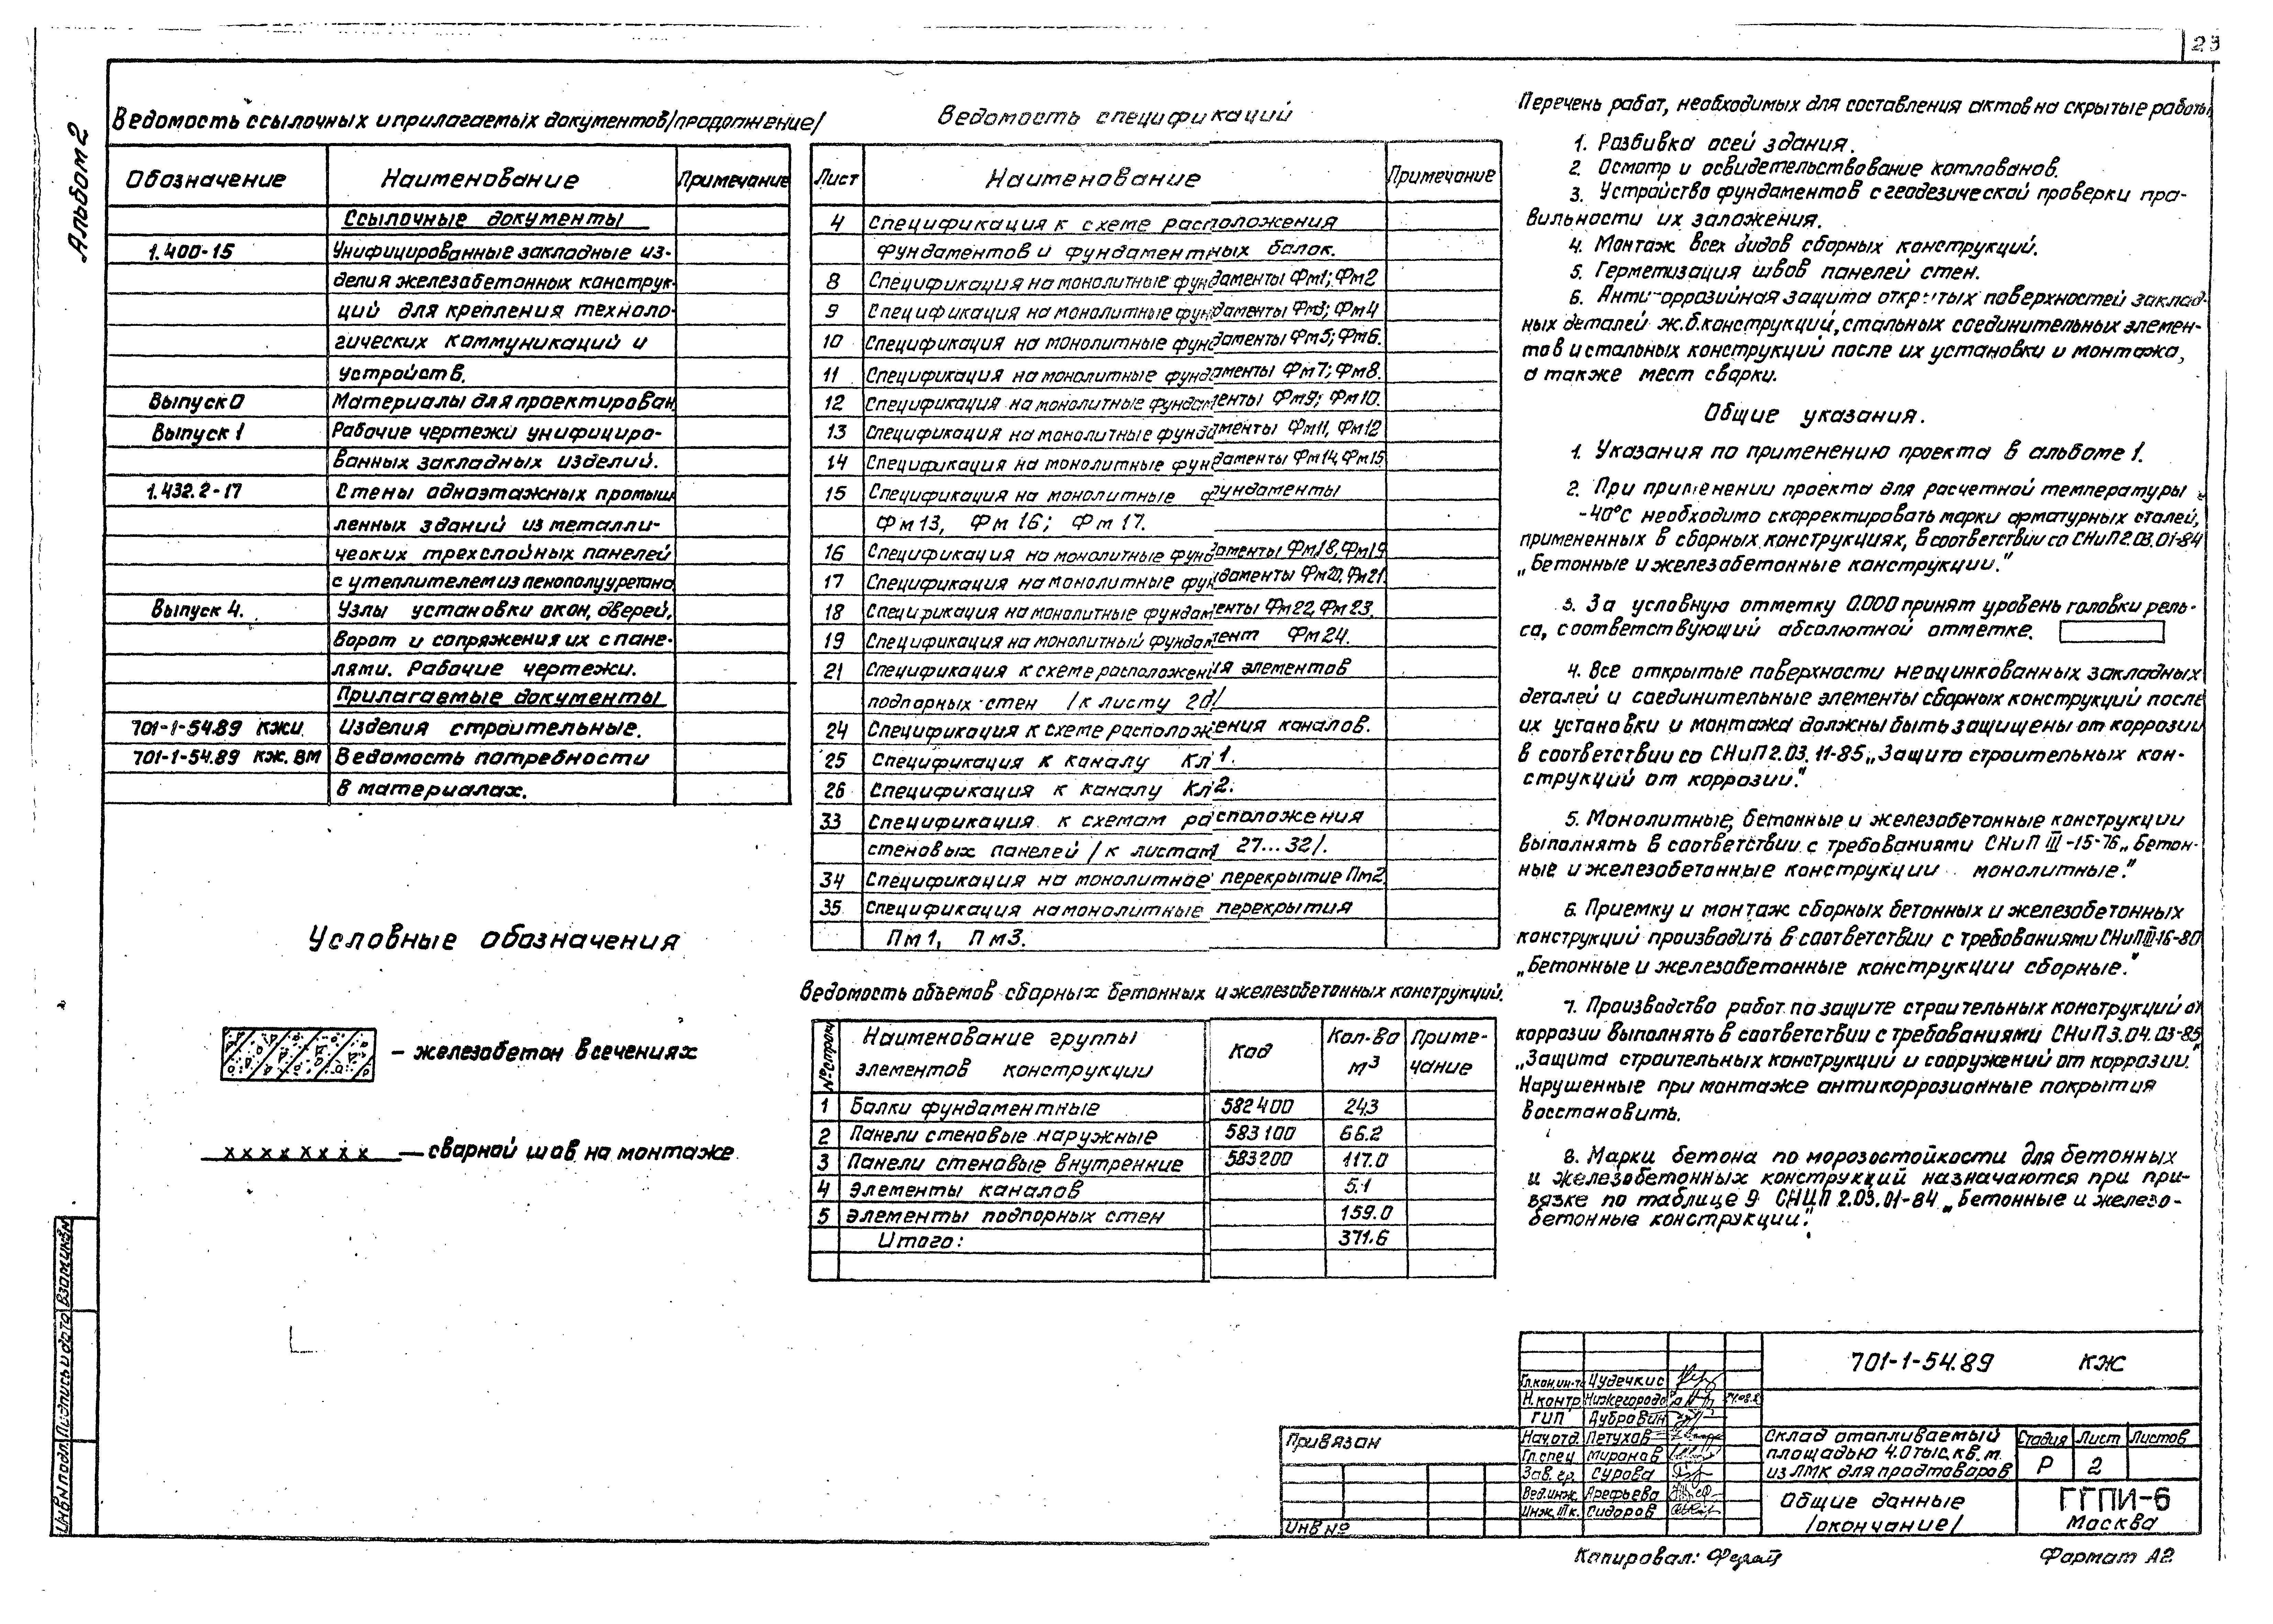 23
Альбом 2
Ведомость ссылочных и прилагаемых документов /продолжение/
Обозначение Наименование Примечание
Ссылочные документы
1.400-15 Унифицированные закладные из-
делия железобетонных конструк-
ций для крепления техноло-
гических коммуникаций и
устройств.
Выпуск 0 Материалы для проектирован.
Выпуск 1 Рабочие чертежи унифициро-
ванных закладных изделий.
1.432.2-17 Стены одноэтажных промыш
ленных зданий из металли-
ческих трехслойных панелей
с утеплителем из пенополиуретана
Выпуск 4. Узлы установки окон, дверей,
ворот и сопряжения их с пане-
лями. Рабочие чертежи.
Прилагаемые документы
701-1-54.89 КЖИ Изделия строительные.
701-1-54.89 КЖ.ВМ Ведомость потребности
в материалах.
Условные обозначения
- железобетон в сечениях
х х х х х х х х — сварной шов на монтаже
Ведомость спецификаций
Лист Наименование Примечание
4 Спецификация к схеме расположения
фундаментов и фундаментных балок.
8 Спецификация на монолитные фундаменты Фм1; Фм2
9 Спецификация на монолитные фундаменты Фм3; Фм4
10 Спецификация на монолитные фундаменты Фм5; Фм6.
11 Спецификация на монолитные фундаменты Фм7; Фм8.
12 Спецификация на монолитные фундаменты Фм9; Фм10.
13 Спецификация на монолитные фундаменты Фм11, Фм12
14 Спецификация на монолитные фундаменты Фм14, Фм15
15 Спецификация на монолитные фундаменты
Фм13, Фм16; Фм17.
16 Спецификация на монолитные фундаменты Фм18, Фм19
17 Спецификация на монолитные фундаменты Фм20, Фм21.
18 Спецификация на монолитные фундаменты Фм22, Фм23.
19 Спецификация на монолитный фундамент Фм24.
21 Спецификация к схеме расположения элементов
подпорных стен /к листу 20/
24 Спецификация к схеме расположения каналов.
25 Спецификация к каналу Кл1.
26 Спецификация к каналу Кл2.
33 Спецификация к схемам расположения
стеновых панелей /к листам 27...32/.
34 Спецификация на монолитное перекрытие Пм2.
35 Спецификация на монолитные перекрытия
Пм1, Пм3.
Ведомость объемов сборных бетонных и железобетонных конструкций.
№ строки Наименование группы элементов конструкции Код Кол-во м³ Приме-чание
1 Балки фундаментные 582400 24.3
2 Панели стеновые наружные 583100 66.2
3 Панели стеновые внутренние 583200 117.0
4 Элементы каналов 5.1
5 Элементы подпорных стен 159.0
Итого: 371.6
Перечень работ, необходимых для составления актов на скрытые работы
1. Разбивка осей здания.
2. Осмотр и освидетельствование котлованов.
3. Устройство фундаментов с геодезической проверки пра-
вильности их заложения.
4. Монтаж всех видов сборных конструкций.
5. Герметизация швов панелей стен.
6. Антикоррозийная защита открытых поверхностей заклад-
ных деталей ж.б. конструкций, стальных соединительных элемен-
тов и стальных конструкций после их установки и монтажа,
а также мест сварки.
Общие указания.
1. Указания по применению проекта в альбоме 1.
2. При применении проекта для расчетной температуры
-40°С необходимо скорректировать марки арматурных сталей,
примененных в сборных конструкциях, в соответствии со СНиП 2.03.01-84
„Бетонные и железобетонные конструкции."
3. За условную отметку 0.000 принят уровень головки рель-
са, соответствующий абсолютной отметке.
4. Все открытые поверхности неоцинкованных закладных
деталей и соединительные элементы сборных конструкций после
их установки и монтажа должны быть защищены от коррозии
в соответствии со СНиП 2.03.11-85 „Защита строительных кон-
струкций от коррозии."
5. Монолитные, бетонные и железобетонные конструкции
выполнять в соответствии с требованиями СНиП III-15-76 „Бетон-
ные и железобетонные конструкции монолитные."
6. Приемку и монтаж сборных бетонных и железобетонных
конструкций производить в соответствии с требованиями СНиП III-16-80
„Бетонные и железобетонные конструкции сборные."
7. Производство работ по защите строительных конструкций от
коррозии выполнять в соответствии с требованиями СНиП 3.04.03-85
„Защита строительных конструкций и сооружений от коррозии."
Нарушенные при монтаже антикоррозионные покрытия
восстановить.
8. Марки бетона по морозостойкости для бетонных
и железобетонных конструкций назначаются при при-
вязке по таблице 9 СНиП 2.03.01-84 „Бетонные и железо-
бетонные конструкции".
701-1-54.89 КЖ
Гл.кон.ин-та Чудечкис
Н.контр Нижегородова
ГИП Дубровин
Нач.отд. Петухов
Гл.спец Миронов
Зав.гр. Сурова
Вед.инж. Арефьева
Инж. IIк. Сидоров
Склад отапливаемый
площадью 4.0 тыс.кв.м.
из ЛМК для продтоваров
Стадия Лист Листов
Р 2
Общие данные
/окончание/
ГГПИ-6
Москва
Привязан
Инв №
Инв.№подл. Подпись и дата Взам.инв.№
Копировал:
Формат А2